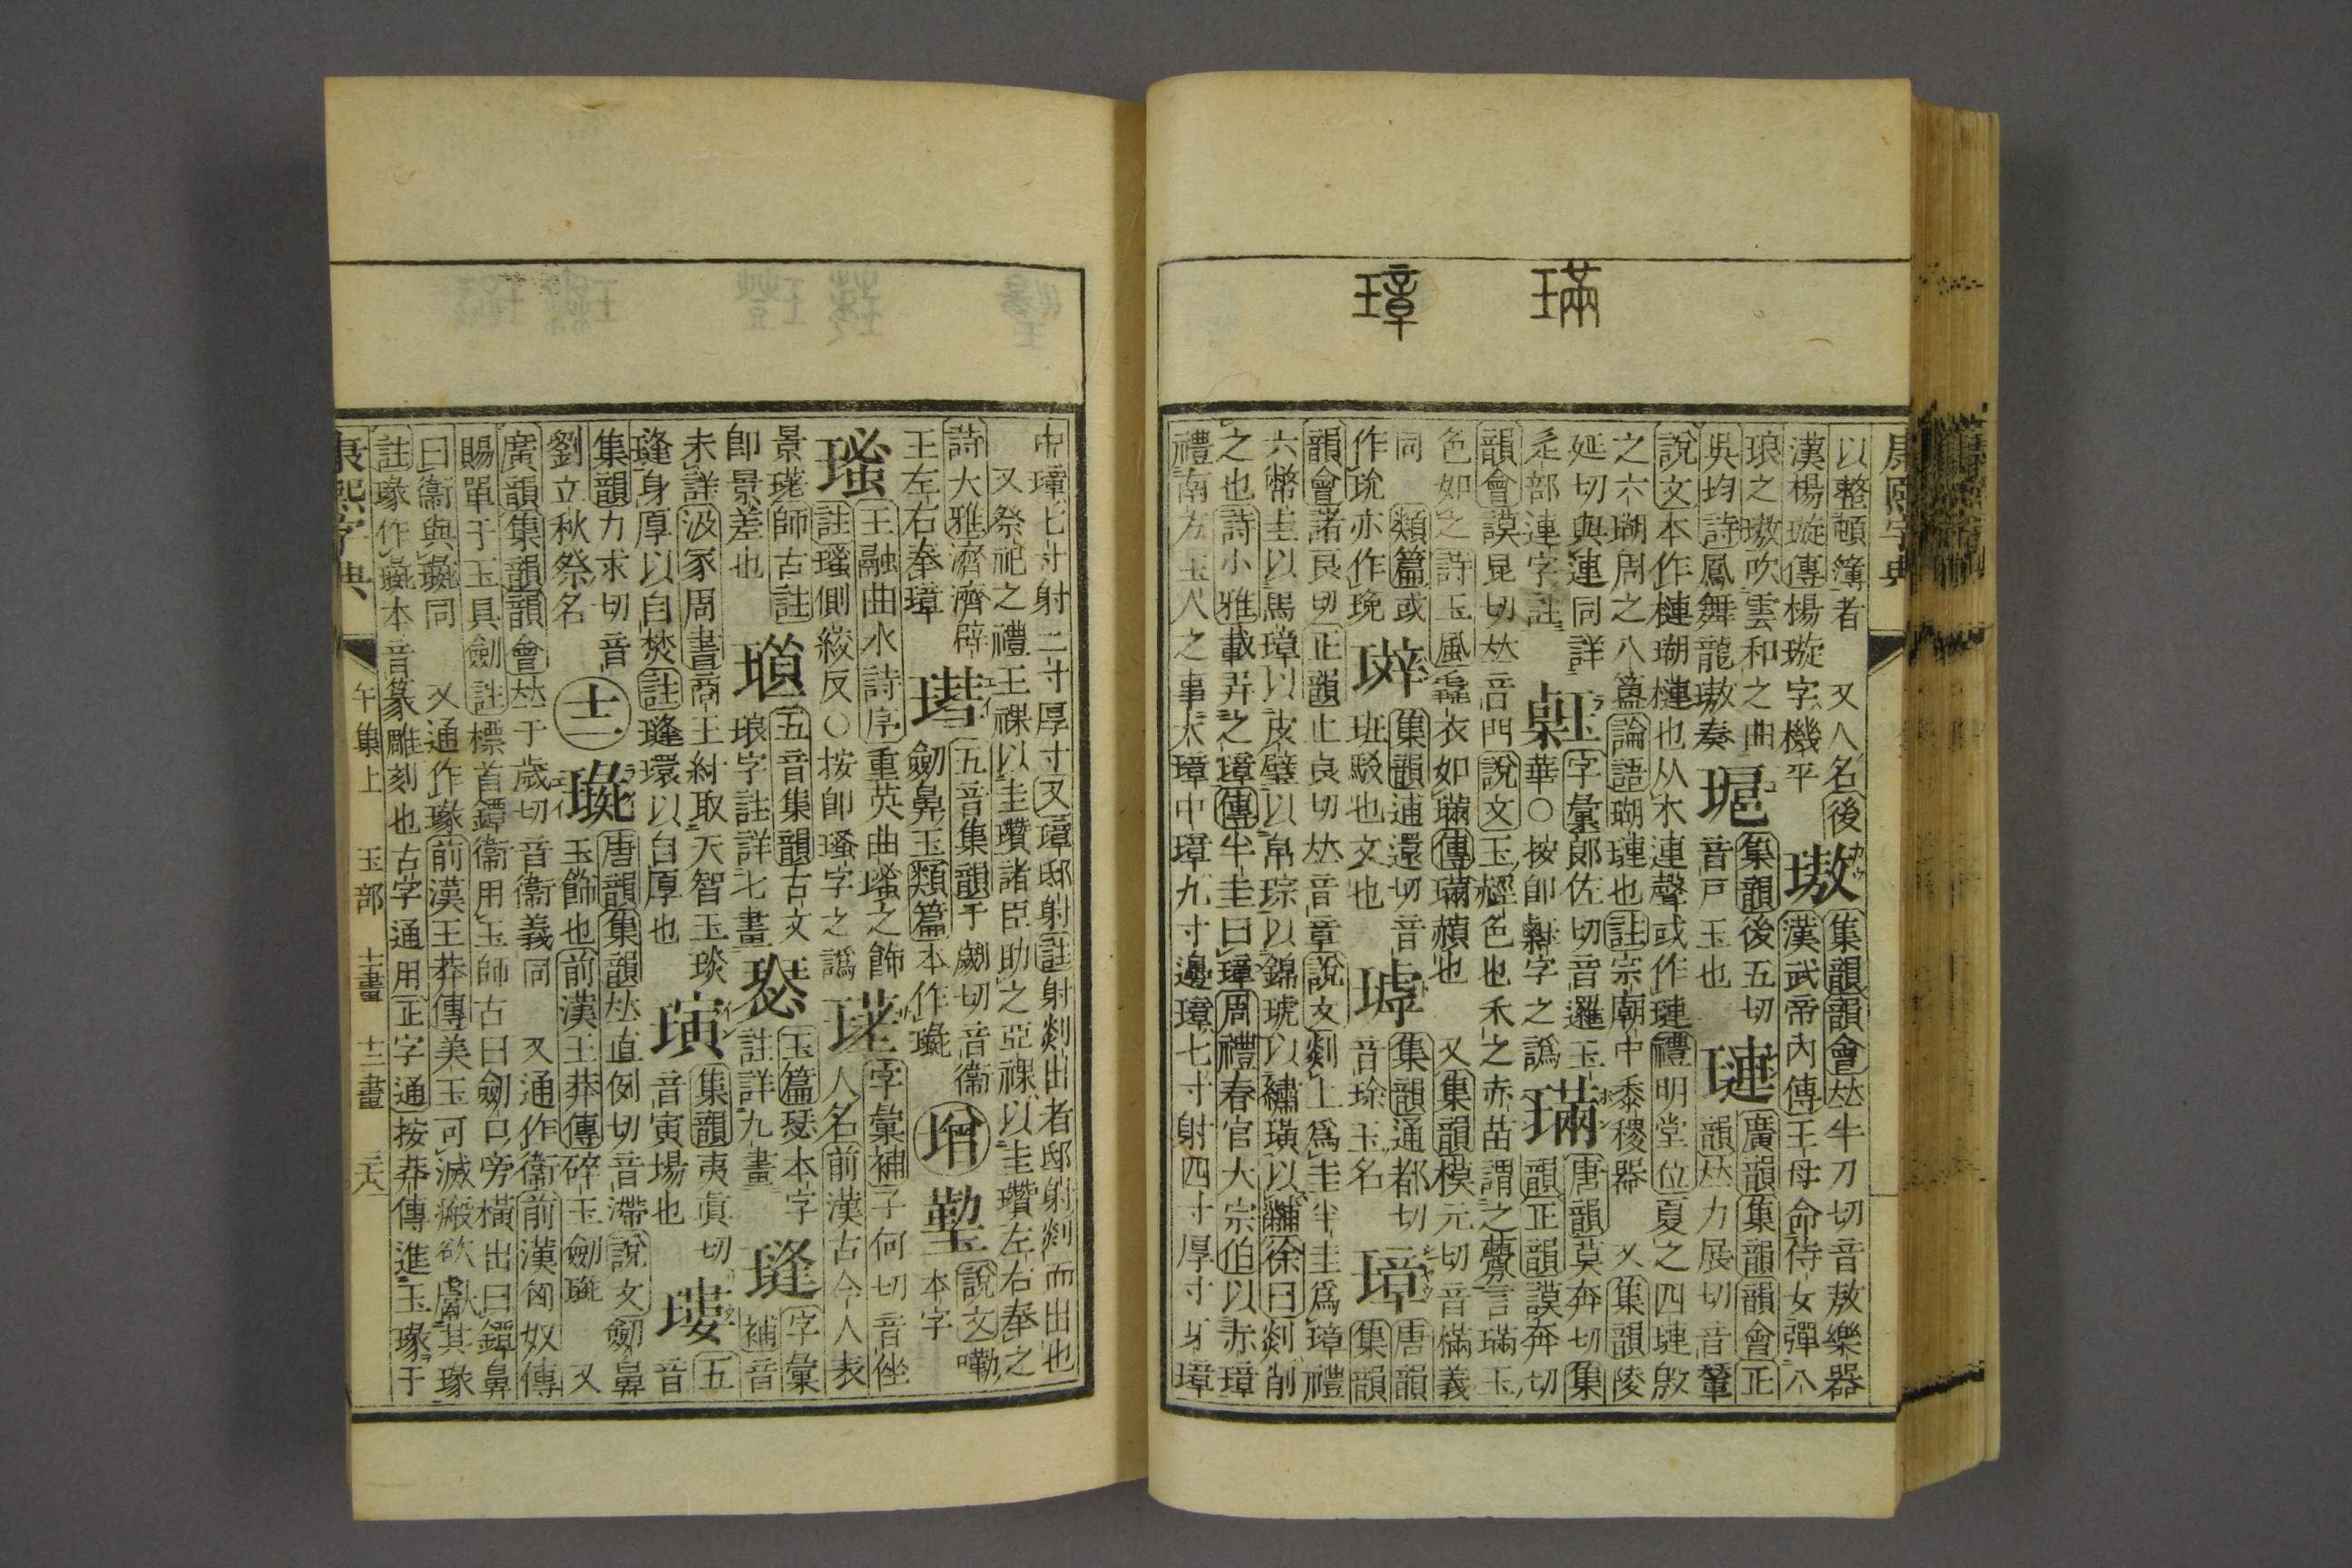 璊
璋
康熙字典
以整頓簿者
又人名後
漢楊璇傳楊璇字機平
璈
集韻韻會𠀤牛刀切音敖樂器
漢武帝內傳王母命侍女彈八
琅之璈吹雲和之曲
吳均詩鳳舞龍璈奏
集韻後五切
音戸玉也
璉
廣韻集韻韻會正
韻𠀤力展切音輦
說文本作槤瑚槤也从木連聲或作璉禮明堂位夏之四璉殷
之六瑚周之八簋論語瑚璉也註宗廟中黍稷器
又集韻陵
延切與連同詳
辵部連字註
字彙郞佐切音邏玉
華○按卽字之譌
璊
唐韻莫奔切集
韻正韻謨奔切
韻會謨昆切𠀤音門說文玉䞓色也禾之赤苗謂之虋言璊玉
色如之詩王風毳衣如璊傳璊赬也
又集韻模元切音樠義
同
類篇或
作玧亦作㻴
集韻逋還切音
班駁也文也
琥
集韻通都切
音瑹玉名
璋
唐韻
集韻
韻會諸良切正韻止良切𠀤音章說文剡上爲圭半圭爲璋禮
六幣圭以馬璋以皮璧以帛琮以錦琥以繡璜以黼徐曰剡削
之也詩小雅載弄之璋傳半圭曰璋周禮春官大宗伯以赤璋
禮南方玉人之事大璋中璋九寸邊璋七寸射四寸厚寸牙璋
中璋七寸射二寸厚寸又璋邸射註射剡出者邸射剡而出也
又祭祀之禮王祼以圭瓚諸臣助之亞祼以圭瓚左右奉之
詩大雅濟濟辟
王左右奉璋
五音集韻于歲切音衞
劒鼻玉類篇本作璏
增
說文墈
本字
瑵
王融曲水詩序重英曲瑵之飾
註瑵側絞反○按卽瑵字之譌
瑳
字彙補子何切音侳
人名前漢古今人表
景瑳師古註
卽景差也
五音集韻古文
琅字註詳七畫
玉篇瑟本字
註詳九畫
字彙
補音
未詳汲冢周書商王紂取天智玉琰
㻱身厚以自焚註㻱環以自厚也
璌
集韻夷眞切
音寅瑒也
瓔
五
音
集韻力求切音
劉立秋祭名
十二
璏
唐韻集韻𠀤直例切音滯說文劒鼻
玉飾也前漢王莽傳碎玉劒璏
又
廣韻集韻韻會𠀤于歲切音衞義同
又通作衞前漢匈奴傳
賜單于玉具劒註標首鐔衞用玉師古曰劒口旁橫出曰鐔鼻
曰衞與璏同
又通作瑑前漢王莽傳美玉可滅瘢欲獻其瑑
註瑑作璏本音篆雕刻也古字通用正字通按莽傳進玉瑑于
康熙字典
午集上
玉部
十一畫
十二畫